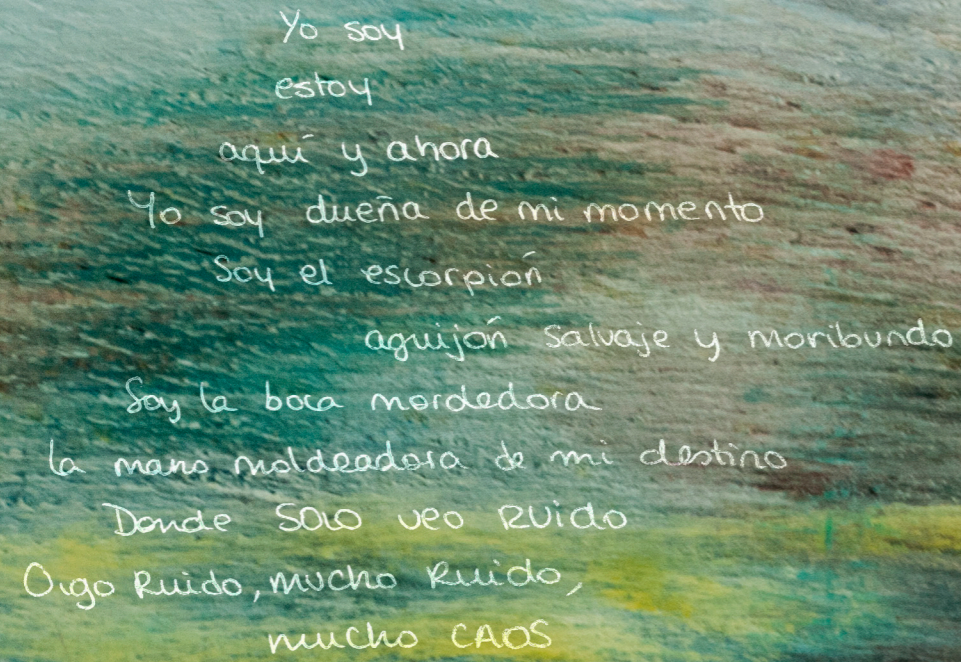 Yo soy
estoy
aquí y ahora
Yo soy dueña de mi momento
Soy el escorpión
aguijón salvaje y moribundo
Soy la boca mordedora
la mano moldeadora de mi destino
Donde SOLO veo RUido
Oigo Ruido, mucho Ruido,
mucho CAOS